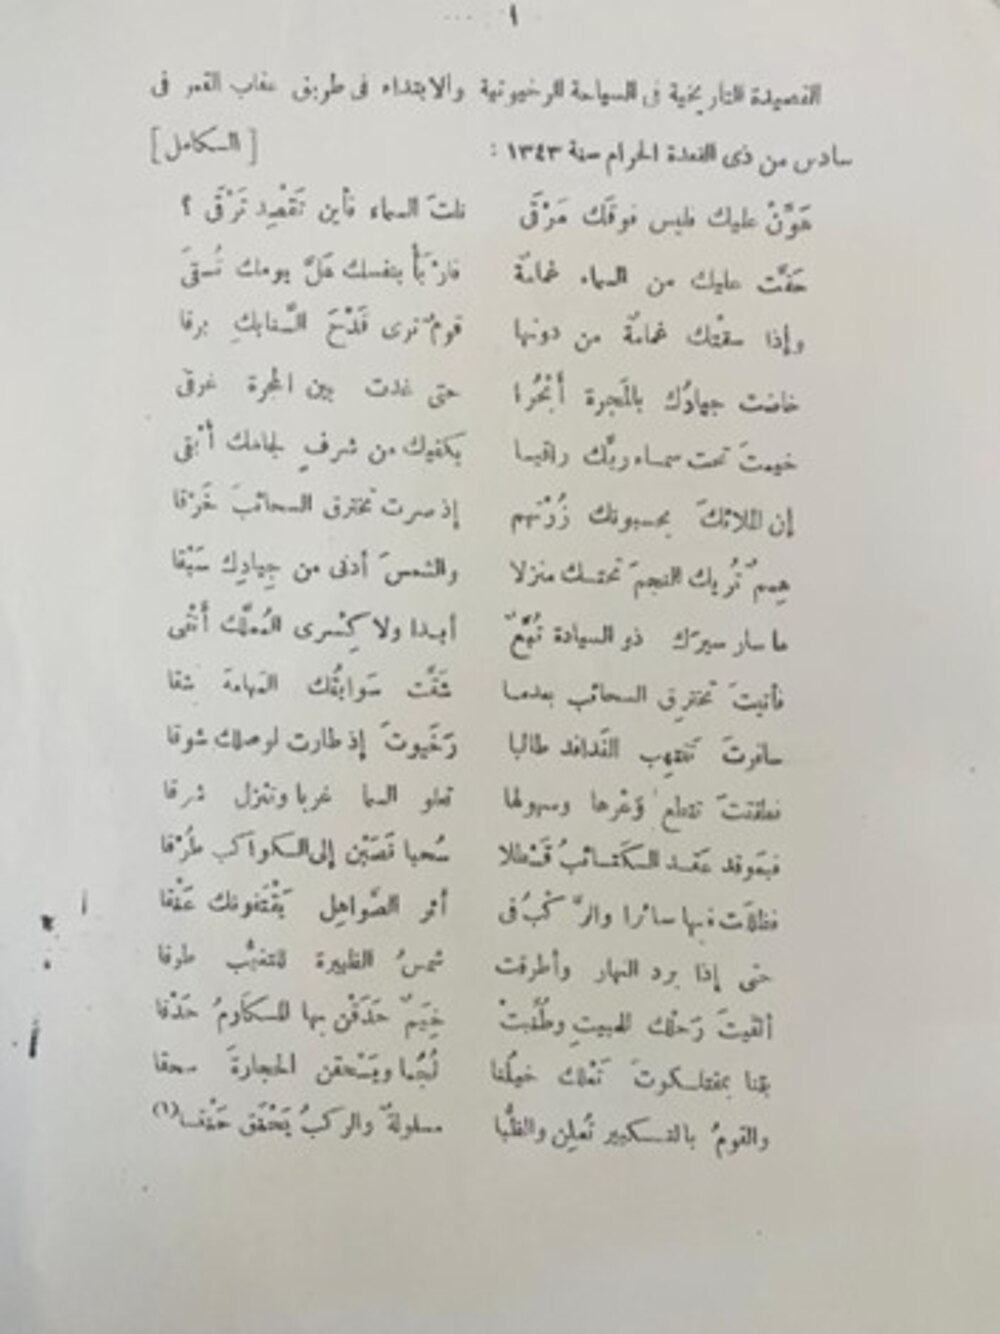 ١
القصيدة التاريخية فى السياحة الرخيوتية والابتداء فى طريق عقاب القمر فى
سادس من ذى القعدة الحرام سنة ١٣٤٣ : [ الكامل ]
هَوِّنْ عليك فليس فوقَك مَرْقَى نلتَ السماء فأين تَقْصِد تَرْقَى ؟
حَفَّت عليك من السماء غمامة فارْبَأْ بنفسك هَلَّ يومك تُسقَى
وإذا سقتْك غمامة من دونها قومٌ ترى قَدْحَ السَّنابكِ برقا
خاضت جيادُك بالمَجرة أَبْحُرا حتى غدت بين المجرة غرقى
خيمتَ تحت سماء ربِّك راقيا يكفيك من شرفٍ لجامك أبْقى
إن الملائكَ يحسبونك زُرْتَهم إذ صرت تخترق السحائبَ خَرْقا
هِممٌ تُريك النجمَ تحتك منزلا والشمسَ أدنى من جِيادِك سَبْقا
ما سار سيرَك ذو السيادة تُبَّعٌ أبدا ولا كِسْرى المُمَلَّك أَنْقى
فأتيتَ تخترق السحائب بعدما شَقَّت سَوابقُك المهامهَ شقا
سافرتَ تنتهب الفَدافد طالبا رَخْيوتَ إذ طارت لوصلك شوقا
فطفقتَ تقطع وَعْرها وسهولها تعلو السما غربا وتنزل شرقا
فبموقد عقد الكتائبُ قَسْطلا سُحبا قَصَبْن إلى الكواكب طُرْقا
فظللت فيها سائرا والرَّكْبُ فى أثر الصَّواهِل يَقْتَفونك عَنْقا
حتى إذا برد النهار وأطرقت شمسُ الظهيرة للتغيُّب طرقا
ألقيتَ رَحْلك للمبيتِ وطُنِّبتْ خِيَمٌ حَدَقْن بها المكارمُ حَدْقا
بتنا بمفتلكوتَ تَعْلك خيلُنا لُجُما ويَسْحقن الحجارةَ سحقا
والقومُ بالتكبير تُعلِن والظُّبا مسلولةٌ والركبُ يَخْفَق خَفْقا (١)